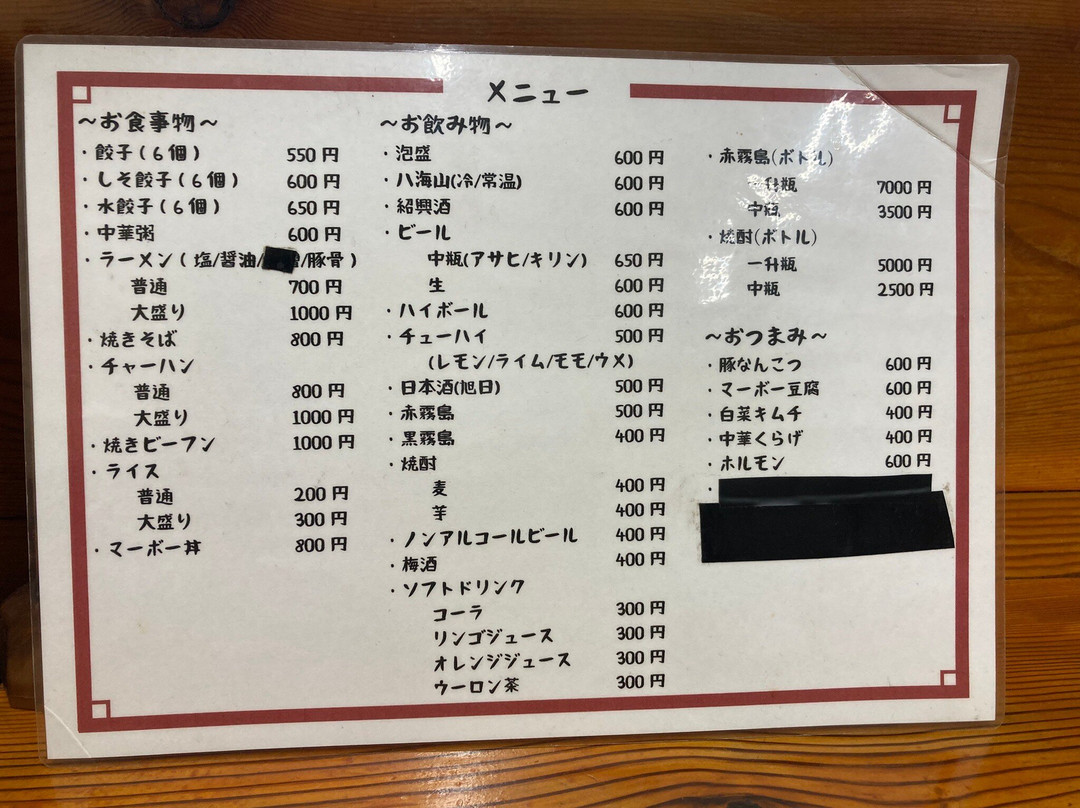 メニュー
～お食事物～
・餃子(6個) 550円
・しそ餃子(6個) 600円
・水餃子(6個) 650円
・中華粥 600円
・ラーメン(塩/醤油/ /豚骨)
普通 700円
大盛り 1000円
・焼きそば 800円
・チャーハン
普通 800円
大盛り 1000円
・焼きビーフン 1000円
・ライス
普通 200円
大盛り 300円
・マーボー丼 800円
～お飲み物～
・泡盛 600円
・八海山(冷/常温) 600円
・紹興酒 600円
・ビール
中瓶(アサヒ/キリン) 650円
生 600円
・ハイボール 600円
・チューハイ 500円
(レモン/ライム/モモ/ウメ)
・日本酒(旭日) 500円
・赤霧島 500円
・黒霧島 400円
・焼酎
麦 400円
芋 400円
・ノンアルコールビール 400円
・梅酒 400円
・ソフトドリンク
コーラ 300円
リンゴジュース 300円
オレンジジュース 300円
ウーロン茶 300円
・赤霧島(ボトル)
一升瓶 7000円
中瓶 3500円
・焼酎(ボトル)
一升瓶 5000円
中瓶 2500円
～おつまみ～
・豚なんこつ 600円
・マーボー豆腐 600円
・白菜キムチ 400円
・中華くらげ 400円
・ホルモン 600円
・